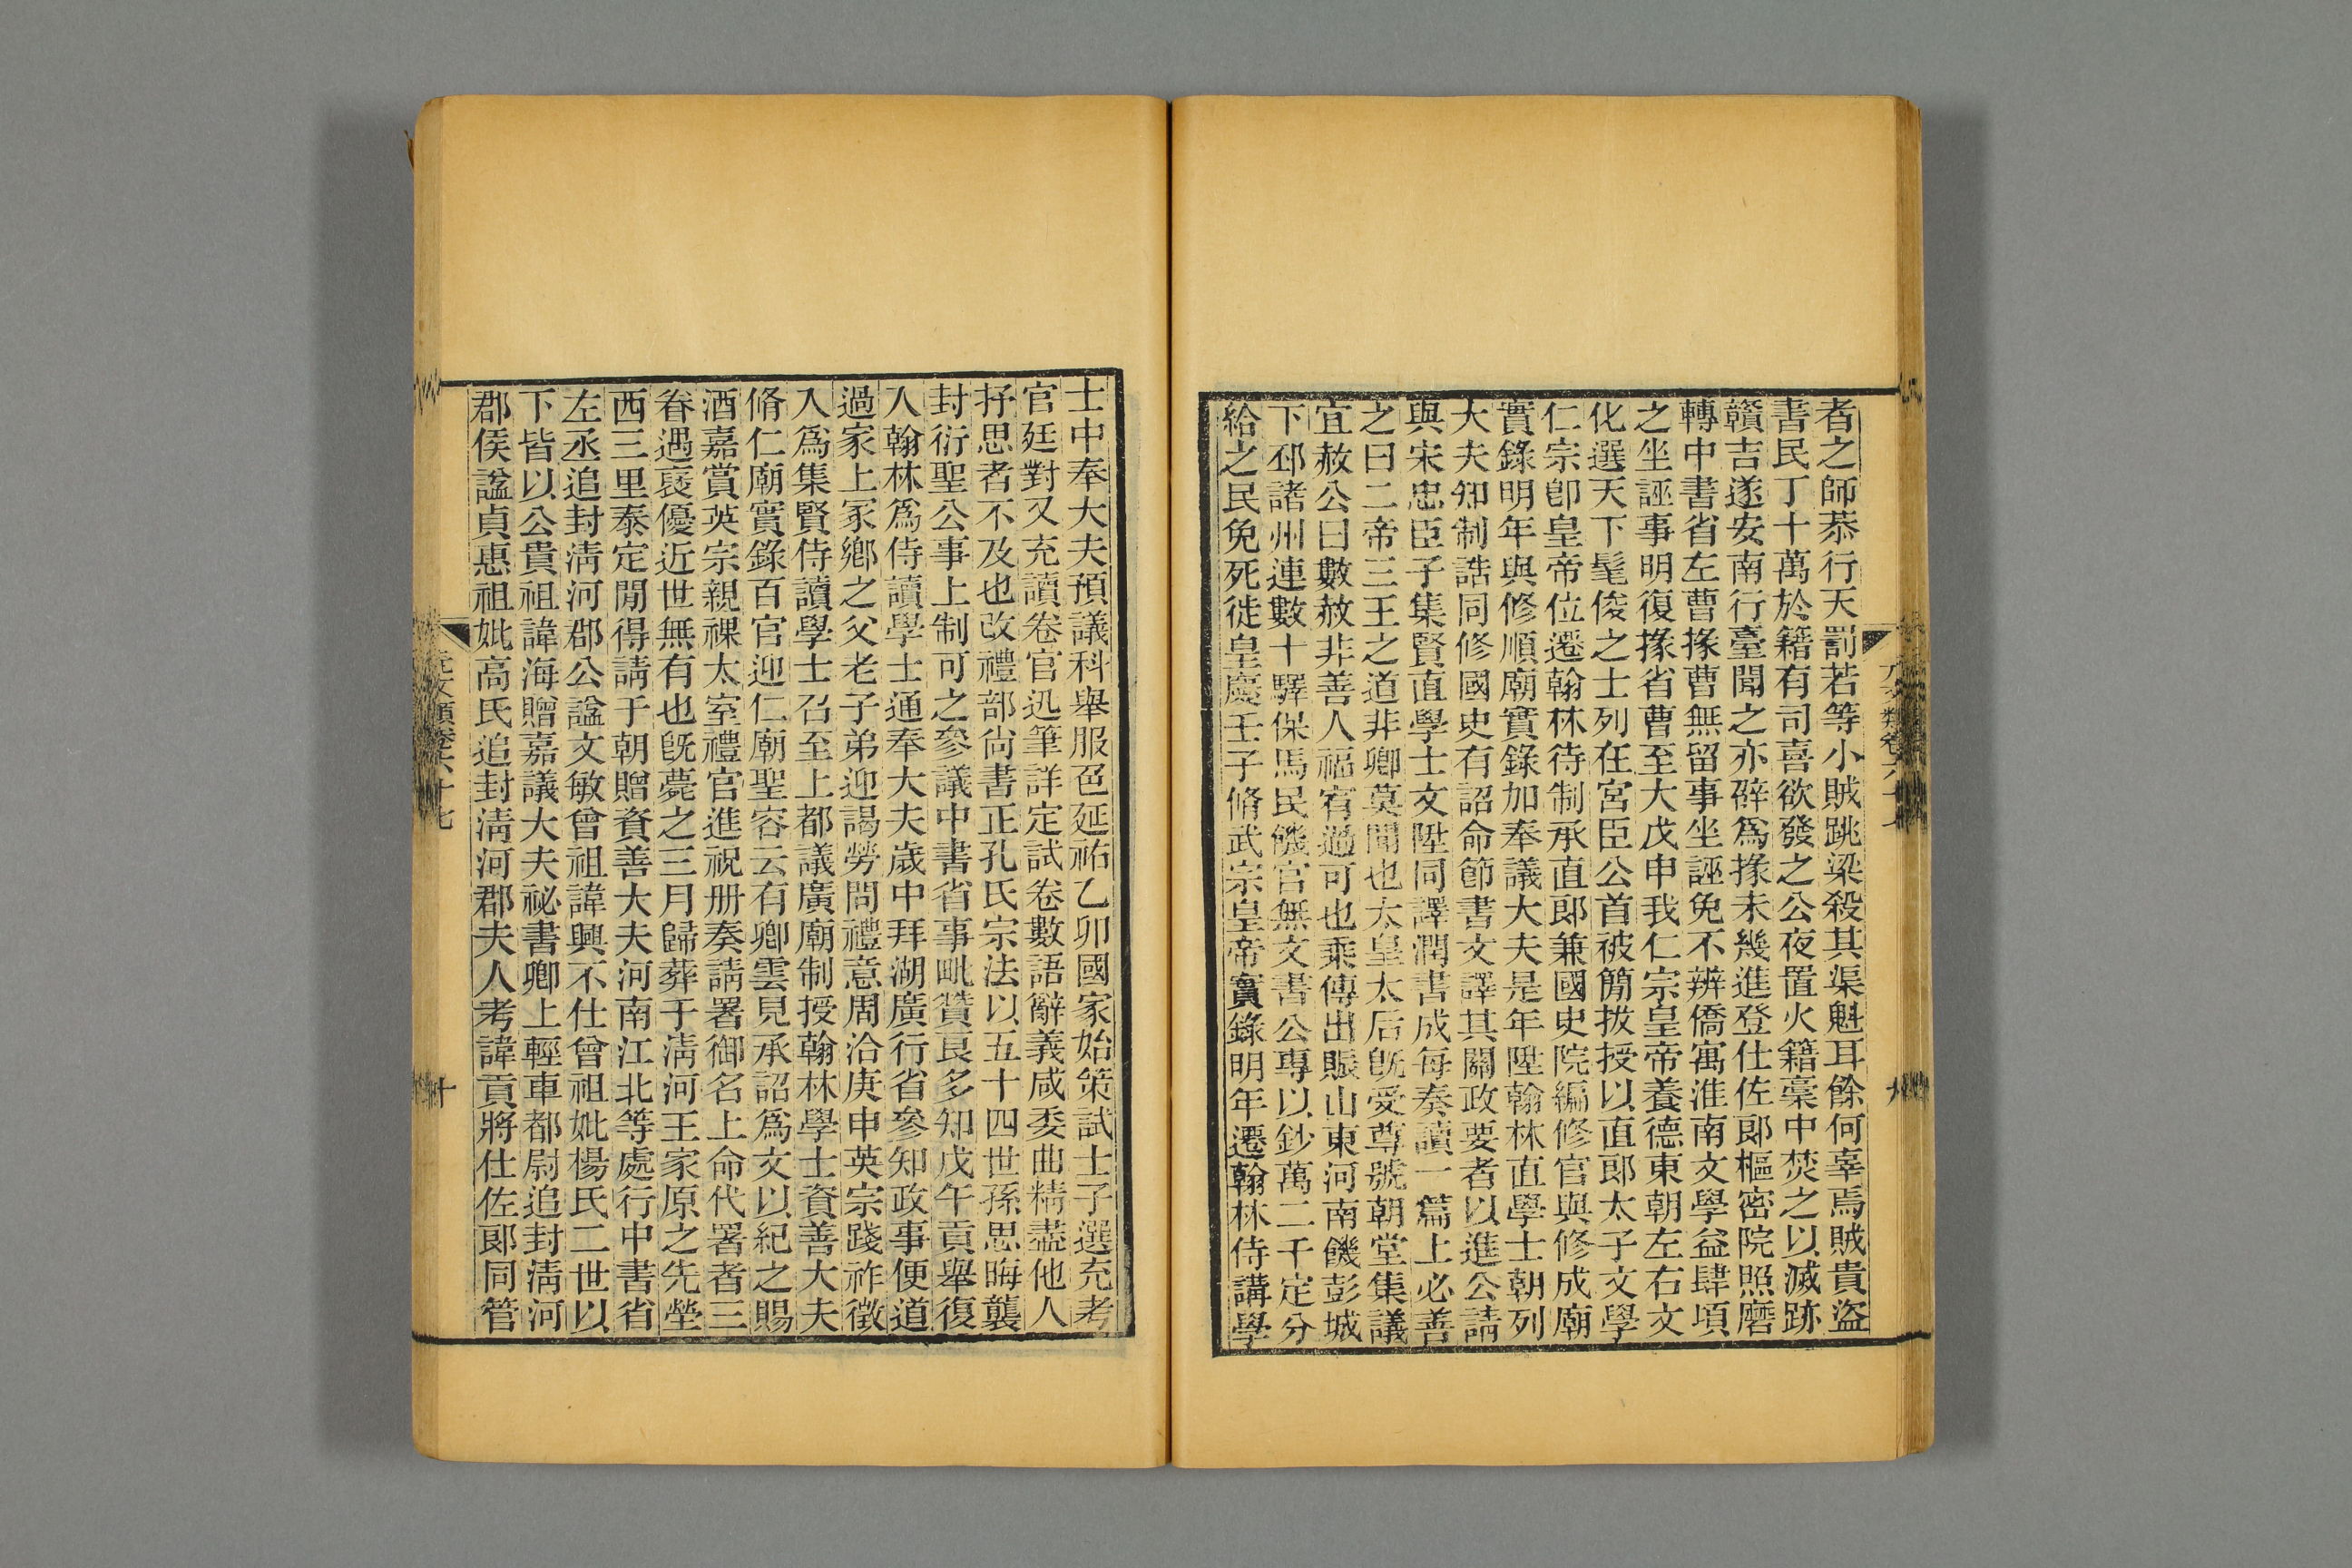 者之師恭行天罰若等小賊跳梁殺其渠魁耳餘何辜焉賊貴盜
書民丁十萬於籍有司喜欲發之公夜置火籍稾中焚之以滅跡
贛吉遂安南行臺聞之亦辟爲掾未幾進登仕佐郞樞密院照磨
轉中書省左曹掾曹無留事坐誣免不辨僑寓淮南文學益肆頃
之坐誣事明復掾省曹至大戊申我仁宗皇帝養德東朝左右文
化選天下髦俊之士列在宮臣公首被簡拔授以直郎太子文學
仁宗卽皇帝位遷翰林待制承直郎兼國史院編修官與修成廟
實錄明年與修順廟實錄加奉議大夫是年陞翰林直學士朝列
大夫知制誥同修國史有詔命節書文譯其關政要者以進公請
與宋忠臣子集賢直學士文陞同譯潤書成每奏讀一篇上必善
之曰二帝三王之道非卿莫聞也太皇太后旣受尊號朝堂集議
宜赦公曰數赦非善人福宥過可也乘傳出賑山東河南饑彭城
下邳諸州連數十驛保馬民饑官無文書公專以鈔萬二千定分
給之民免死徙皇慶壬子脩武宗皇帝實錄明年遷翰林侍講學
元文類卷六十七
九
士中奉大夫預議科舉服色延祐乙卯國家始策試士子選充考
官廷對又充讀卷官迅筆詳定試卷數語辭義咸委曲精盡他人
抒思者不及也改禮部尙書正孔氏宗法以五十四世孫思晦襲
封衍聖公事上制可之參議中書省事毗贊良多知戊午貢舉復
入翰林爲侍讀學士通奉大夫歲中拜湖廣行省參知政事便道
過家上冢鄉之父老子弟迎謁勞問禮意周洽庚申英宗踐祚徵
入爲集賢侍讀學士召至上都議廣廟制授翰林學士資善大夫
脩仁廟實錄百官迎仁廟聖容云有卿雲見承詔爲文以紀之賜
酒嘉賞英宗親祼太室禮官進祝册奏請署御名上命代署者三
眷遇裦優近世無有也旣薨之三月歸葬于淸河王家原之先塋
西三里泰定閒得請于朝贈資善大夫河南江北等處行中書省
左丞追封淸河郡公諡文敏曾祖諱興不仕曾祖妣楊氏二世以
下皆以公貴祖諱海贈嘉議大夫祕書卿上輕車都尉追封淸河
郡侯諡貞惠祖妣高氏追封淸河郡夫人考諱貢將仕佐郞同管
元文類卷六十七
十